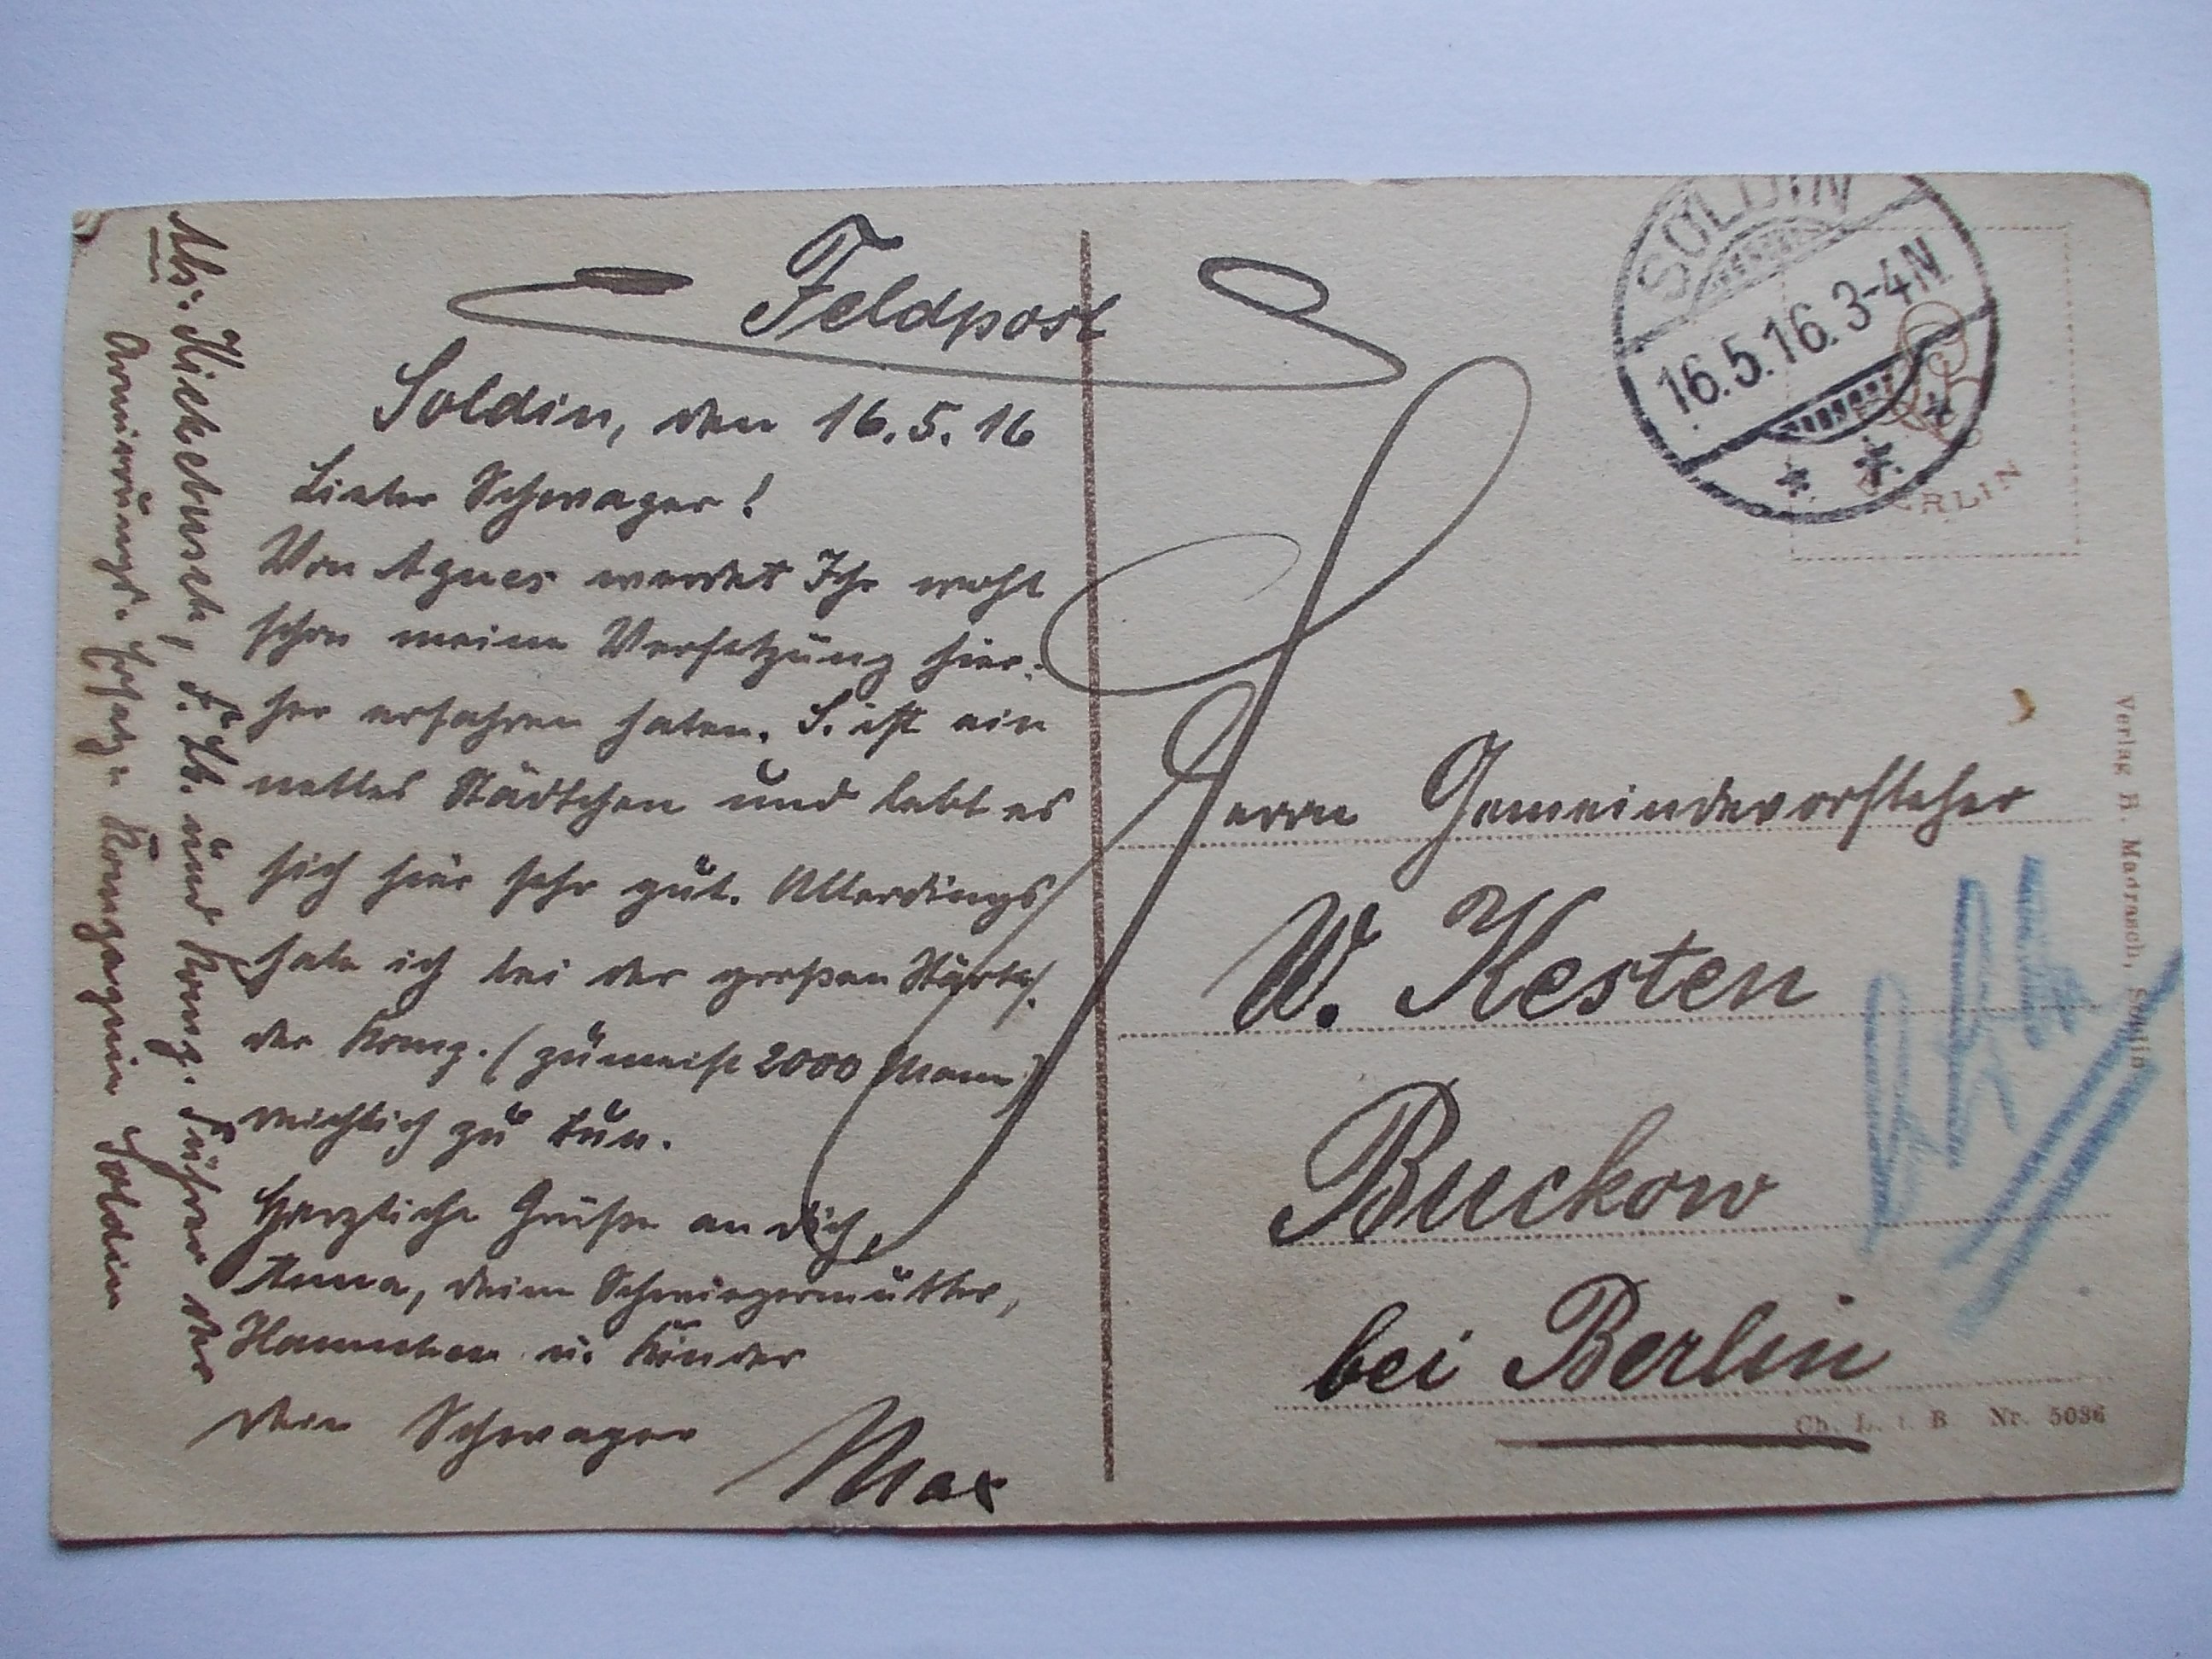 Feldpost
Soldin, den 16.5.16
Lieber Schwager!
Von Agnes werdet Ihr wohl
schon meine Versetzung hier-
her erfahren haben. S. ist ein
nettes Städtchen und lebt es
sich hier sehr gut. Allerdings
habe ich bei der großen Stärke
der Komp. (zumeist 2000 Mann)
reichlich zu tun.
Herzliche Grüße an Dich,
Anna, deine Schwiegermutter,
Hannchen u. Kinder
Dein Schwager
Max
Abs. Kiekebusch, F. Lt. und Komp. Führer der
Armierungs-Ersatz-Kompagnie Soldin
SOLDIN
16.5.16. 3-4N
BERLIN
Herrn Gemeindevorsteher
W. Kesten
Buckow
bei Berlin
Verlag H. Madrasch, Soldin
Ch. L. i. B Nr. 5036